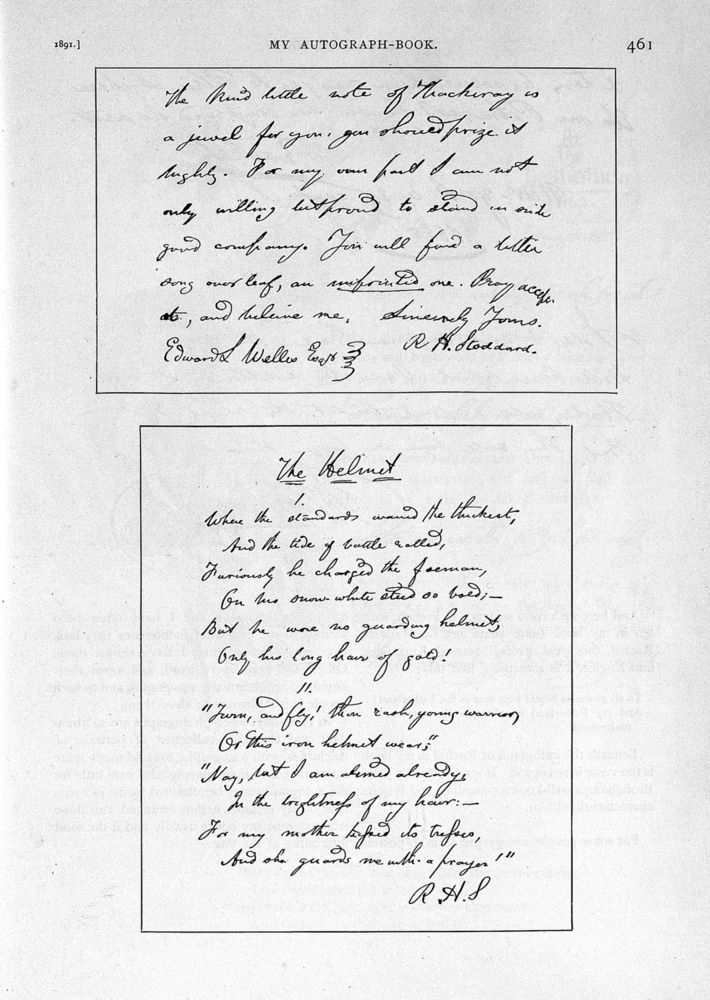 1891.] MY AUTOGRAPH-BOOK. 461
The kind little note of Thackeray is
a jewel for you. you should prize it
highly. For my own part I am not
only willing but proud to stand in such
good company. You will find a little
song over leaf, an unprinted one. Pray accept
it, and believe me, Sincerely Yours.
R H. Stoddard.
Edward S Welles Esqr
The Helmet
I.
Where the standards waved the thickest,
And the tide of battle rolled,
Furiously he charged the foeman,
On his snow-white steed so bold;—
But he wore no guarding helmet,
Only his long hair of gold!
II.
"Turn, and fly! thou rash, young warrior,
Or this iron helmet wear;"
"Nay, but I am armed already,
In the brightness of my hair:—
For my mother kissed its tresses,
And she guards me with a prayer!"
R. H. S